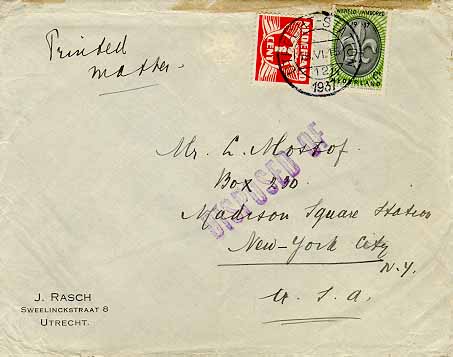 Printed
matter.
CENT
NEDERLAND
WERELD JAMBOREE
NEDERLAND
VI
1937
Mr. L. Moshof.
Box 230.
Madison Square Station
New-York City
N.Y.
U. S. A.
DISPOSED OF
J. RASCH
SWEELINCKSTRAAT 8
UTRECHT.